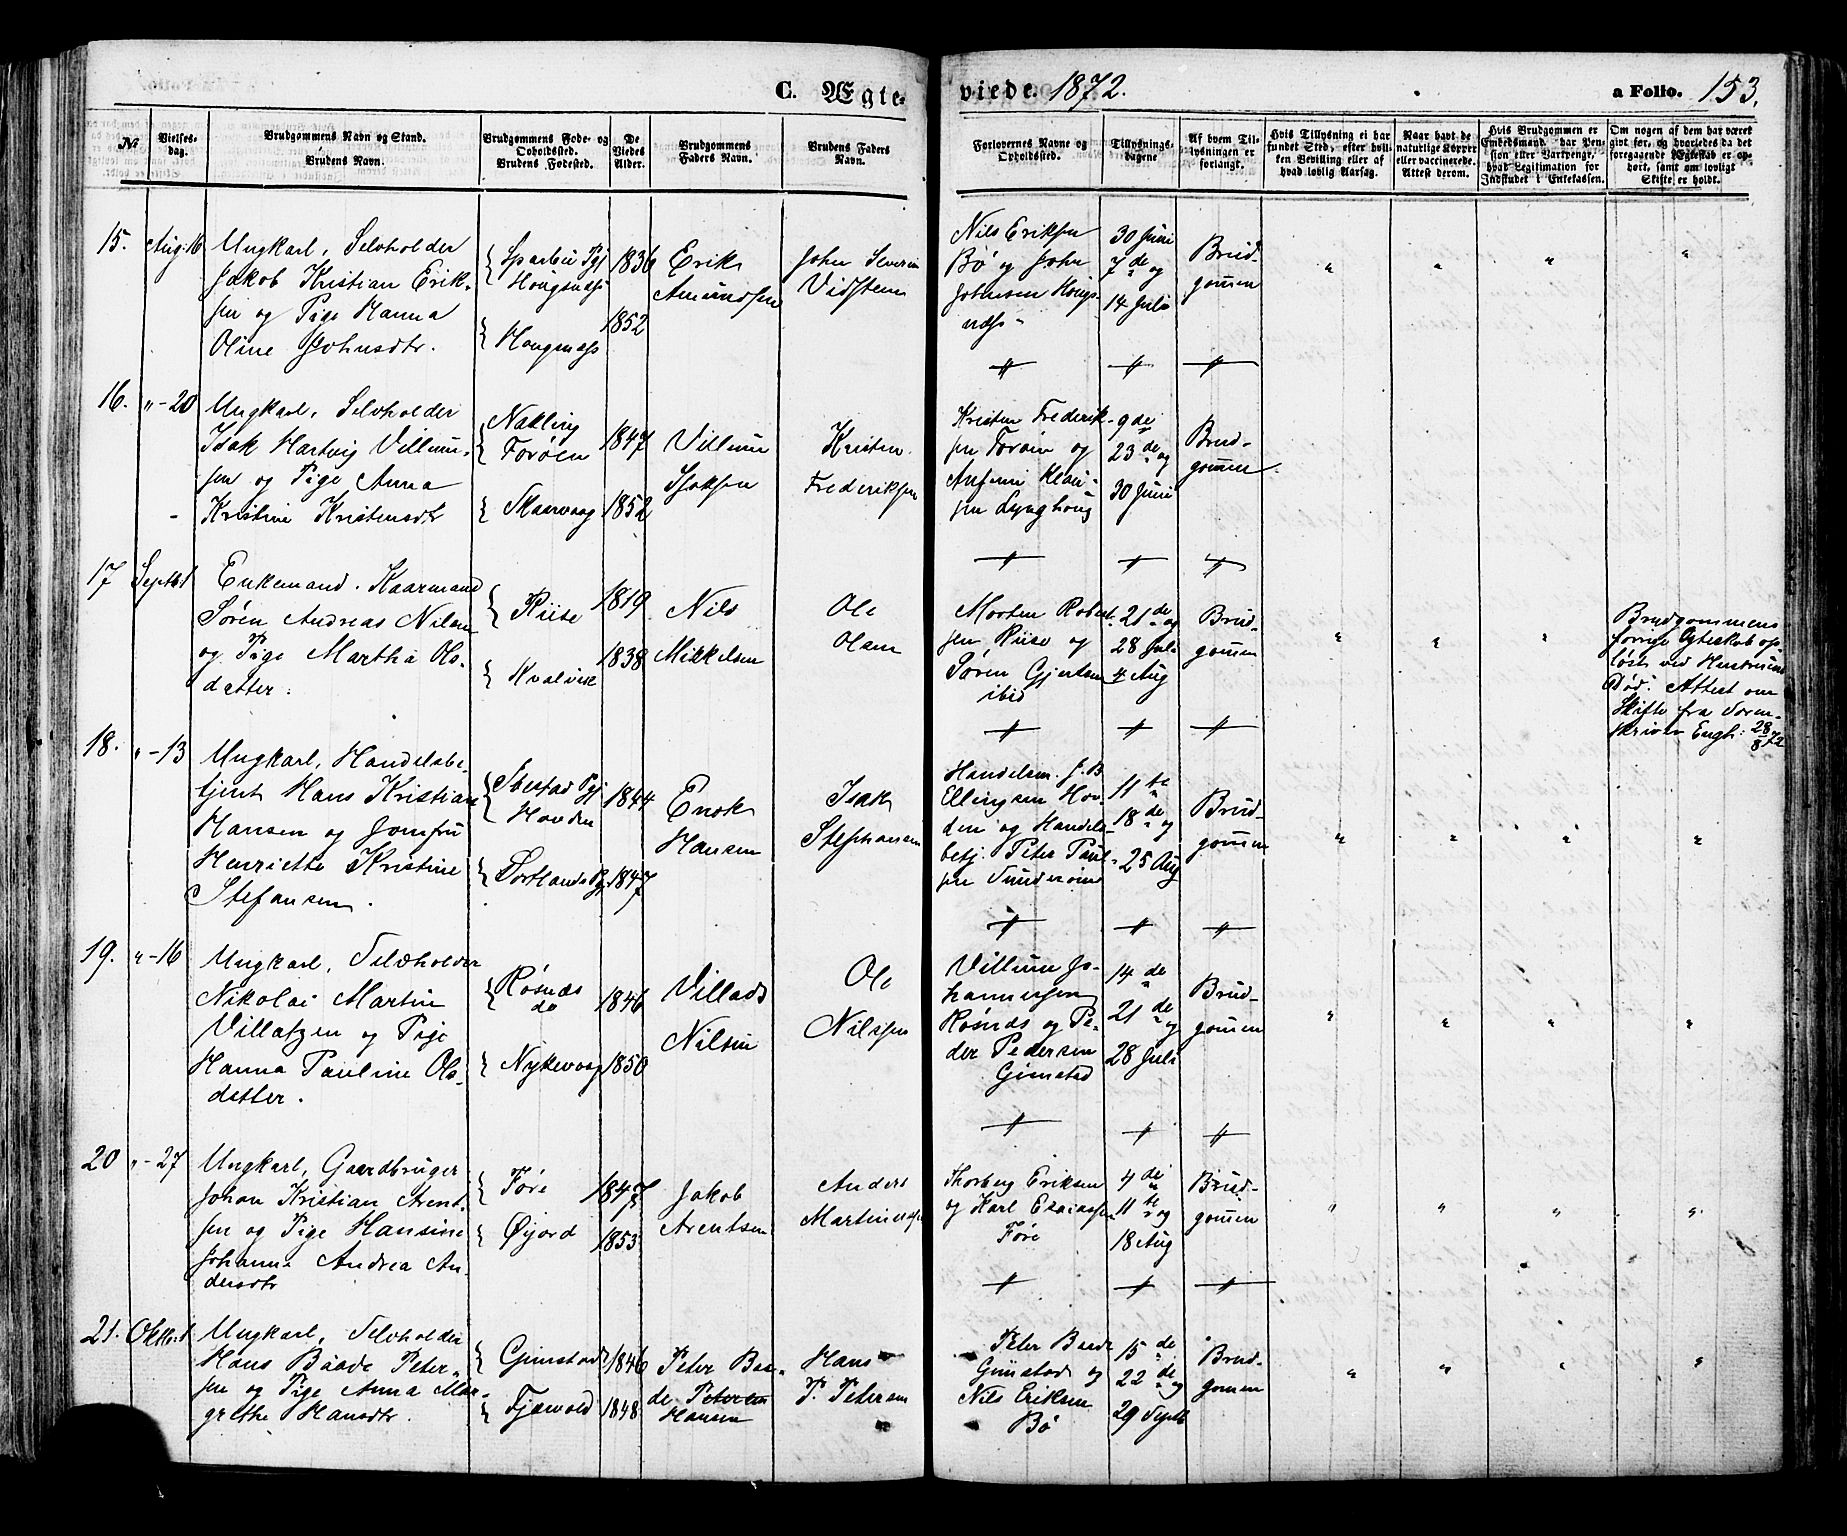 C. Ægte-
viede. 1872.
a Folio. 153.
No
Vielses-
dag.
Brudgommens Navn og Stand.
Brudens Navn.
Brudgommens Føde- og
Opholdssted.
Brudens Fødested.
De
Viedes
Alder.
Brudgommens
Faders Navn.
Brudens Faders
Navn.
Forlovernes Navne og
Opholdssted.
Tillysnings-
dagene
Af hvem Til-
lysningen er
forlangt.
Hvis Tillysning ei har
fundet Sted, efter hvil-
ken Bevilling eller af
hvad lovlig Aarsag.
Naar havt de
naturlige Kopper
eller vaccinerede.
Attest derom.
Hvis Brudgommen er
Embedsmand, har Pen-
sion eller Vartpenge,
hvad Legitimation for
Indskudet i Enkekassen.
Om nogen af dem har været
givt før, og hvorledes da det
foregaaende Ægteskab er op-
hørt, samt om lovligt
Skifte er holdt.
15. Aug: 16
Ungkarl, Selvholder
Jakob Kristian Erik-
sen og Pige Hanna
Oline Johnsdtr.
Sparbu Pgj
Hougsnæss
Hougsnæss
1836
1852
Erik
Amundsen
John Severin
Vidsteen
Nils Eriksen
Bø og John
Johnsen Hougs-
næss
30 Juni
7de og
14 Juli
Brud-
gommen
" " " "
16. " - 20
Ungkarl, Selvholder
Isak Hartvig Villum-
sen og Pige Anna
Kristine Kristensdtr
Nakling
Forøen
Skaarvaag
1847
1852
Villum
Isaksen
Kristen
Frederiksen
Kristen Frederik-
sen Forøen og
Anfinn Klau-
sen Lynghoug
9de
23de og
30 Juni
Brud-
gommen
17 Septb: 1
Enkemand. Kaarmand
Søren Andreas Nilsen
og Pige Martha Ols-
datter.
Riise
Kvalvik
1819
1838
Nils
Mikkelsen
Ole
Olsen
Morten Robert-
sen Riise og
Søren Gjertsen
ibid
21de og
28 Juli
4 Aug
Brud-
gommen
" " "
Brudgommens
forrige Egteskab op-
løst ved Hustruens
Død. Attest om
Skifte fra Soren-
skriver Engh: 28/8 72
18. " - 13
Ungkarl, Handelsbe-
tjent Hans Kristian
Hansen og Jomfru
Henriette Kristine
Stefansen.
Ibestad Pgj
Hovden
Sortlands Pgj.
1844
1847
Enok
Hansen
Isak
Stephansen
Handelsm. J. B
Ellingsen Hov-
den og Handels-
betj. Peter Paul-
sen Tunderøine
11te
18de og
25 Aug
Brud-
gommen
" " " "
19. " - 16
Ungkarl, Selvholder
Nikolai Martin
Villatzen og Pige
Hanna Pauline Ols-
datter.
Røsnæs
do
Nykevaag
1846
1850
Villads
Nilsen
Ole
Nilssen
Villum Jo-
hannessen
Røsnæs og Pe-
der Pedersen
Gimstad
14de
21de og
28 Juli
Brud-
gommen
" " " "
20 " - 27
Ungkarl, Gaardbruger
Johan Kristian Arent-
sen og Pige Hansine
Johanna Andrea An-
dersdtr
Føre
Øijord
1847
1853
Jakob
Arentsen
Anders
Martinussen
Thorberg Eriksen
og Karl Esaiassen
Føre
4de
11te og
18 Aug
Brud-
gommen
" " " "
21. Oktb: 1
Ungkarl, Selvholder
Hans Baade Peter-
sen og Pige Anna Mar-
grethe Hansdtr.
Gimstad
Fjærvold
1846
1848
Peter Baa-
de Petersen
Hansen
Hans
P. Petersen
Peter Baade
Gimstad og
Nils Eriksen
Bø
15de
22de og
29 Septb
Brud-
gommen
" " " "